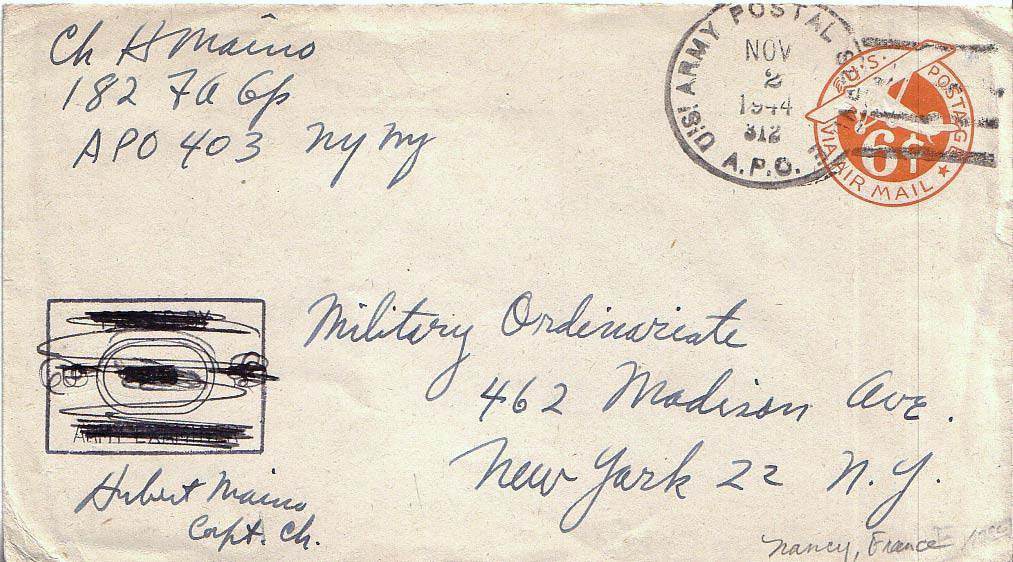 Ch H Maino
182 FA Gp
APO 403 NY NY
U.S. ARMY POSTAL
A.P.O.
NOV
2
1944
312
U.S. POSTAGE
6¢
VIA AIR MAIL
Military Ordinariate
462 Madison Ave.
New York 22 N.Y.
Hubert Maino
Capt. Ch.
Nancy, France